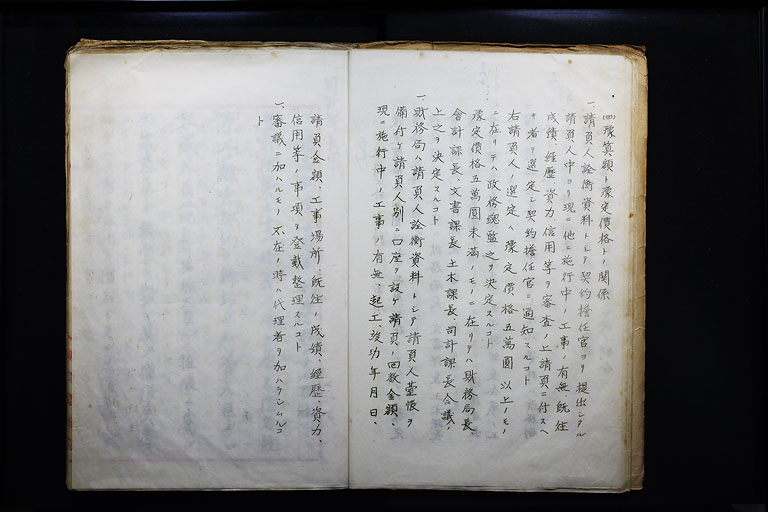 ㈣豫算額ト豫定價格トノ關係
一、請負人詮衡資料トシテ契約擔任官ヨリ提出シタル
請負人中ヨリ現ニ他ニ施行中ノ工事ノ有無既往
成績、經歷、資力信用等ヲ審査ノ上請負ニ付スヘ
キ者ヲ選定シ契約擔任官ニ通知スルコト
右請負人ノ選定ハ豫定價格五萬圓以上ノモノ
ニ在リテハ政務總監之ヲ決定スルコト
豫定價格五萬圓未滿ノモノニ在リテハ財務局長、
會計課長、文書課長、土木課長、司計課長合議ノ
上之ヲ決定スルコト
一、財務局ハ請負人詮衡資料トシテ請負人臺帳ヲ
備付ケ請負人別ニ口座ヲ設ケ請負ノ回數金額、
現ニ施行中ノ工事ノ有無、起工、竣功年月日、
請負金額、工事場所、既往ノ成績、經歷、資力、
信用等ノ事項ヲ登載整理スルコト
一、審議ニ加ハルモノ不在ノ時ハ代理者ヲ加ハラシムルコ
ト